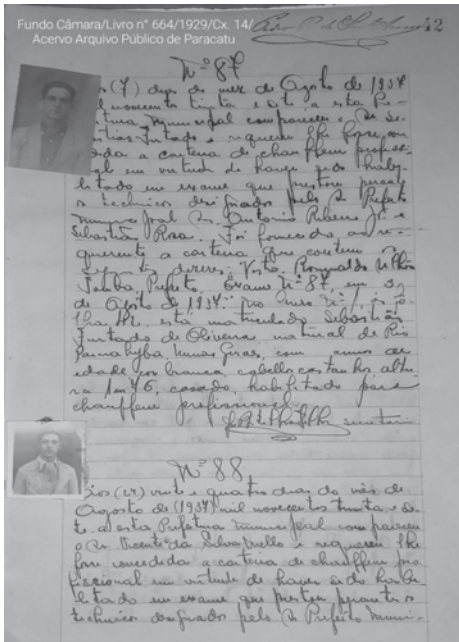 Fundo Câmara/Livro n° 664/1929/Cx. 14/
Acervo Arquivo Público de Paracatu
42
Nº 87
(7) dias do mez de Agosto de 1937
mil novecentos trinta e sete a esta Pre-
tura Municipal compareceu o Sr. Se-
Furtado e requereu lhe fosse con-
a carteira de chauffeur profiss-
em virtude de haver sido habi-
litado em exame que prestou perante
os technicos designados pelo Sr. Prefeito
Municipal Sr. Antonio Ribeiro e
Sebastião Rosa. Foi fornecido ao re-
querente a carteira que contem os
dizeres: Visto. Romualdo Ulhôa
Tomba, Prefeito. Exame Nº 87, em
de Agosto de 1937.
está matriculado Sebastião
Furtado de Oliveira, natural de Rio
Parnahyba, Minas Geraes, com annos de
idade, cor branca, cabellos castanhos, altu-
ra 1m76, casado, habilitado para
chauffeur profissional.
secretario
Nº 88
(24) vinte e quatro dias do mês de
Agosto de (1937) mil novecentos trinta e se-
te a esta Prefeitura Municipal compareceu
o Sr. Vicente da Silva e requereu lhe
fosse concedida a carteira de chauffeur pro-
fissional em virtude de haver sido habi-
litado em exame que prestou perante os
technicos designados pelo Sr. Prefeito Muni-